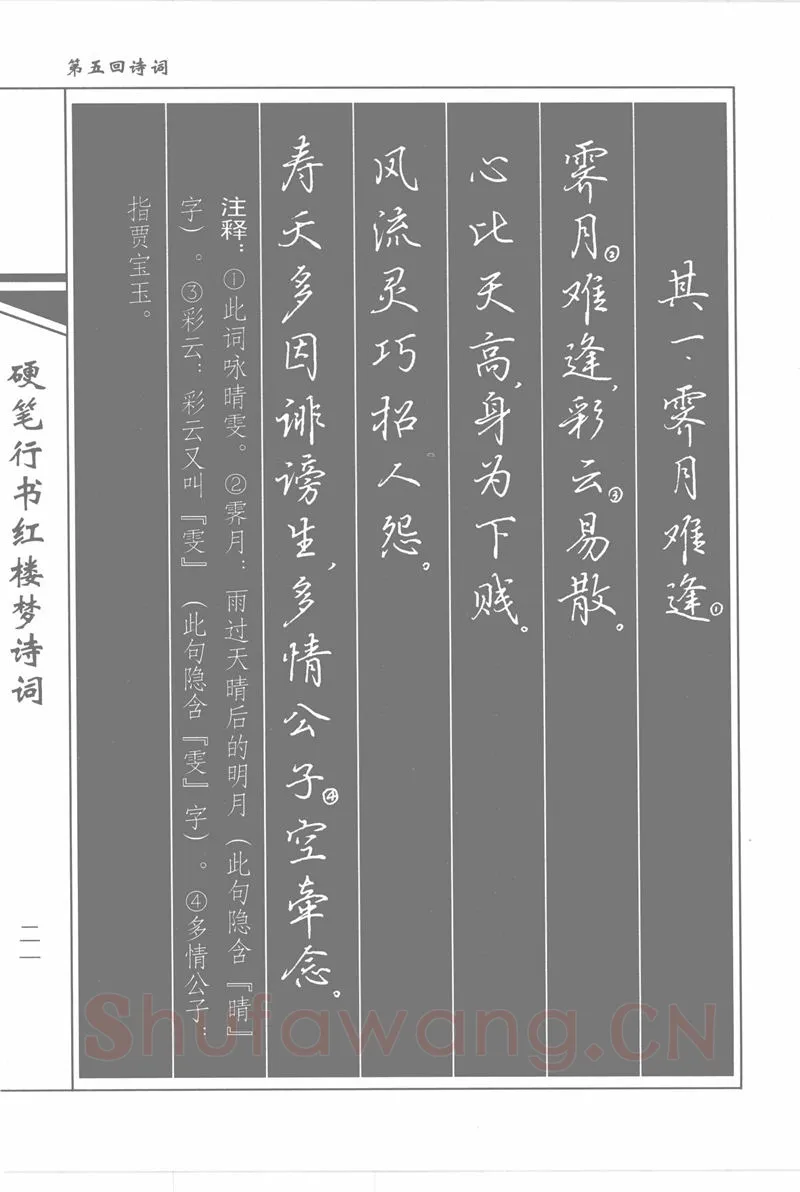 第五回诗词
其一、霁月难逢①
霁月②难逢,彩云③易散。
心比天高,身为下贱。
风流灵巧招人怨。
寿夭多因诽谤生,多情公子④空牵念。
注释:①此词咏晴雯。②霁月:雨过天晴后的明月(此句隐含『晴』
字)。③彩云:彩云又叫『雯』(此句隐含『雯』字)。④多情公子:
指贾宝玉。
硬笔行书红楼梦诗词
二一
Shufawang.CN